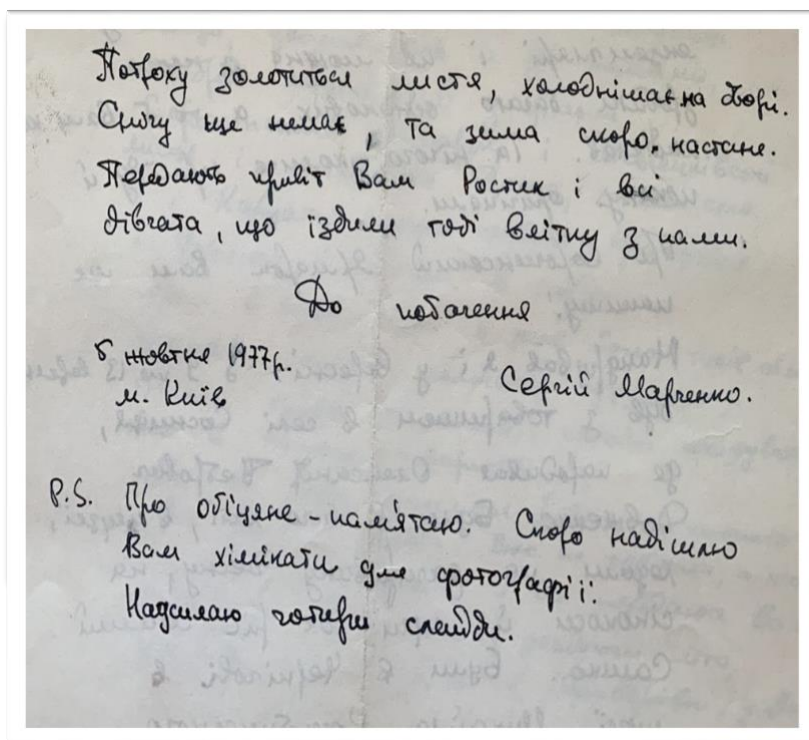 Потроху золотиться листя, холоднішає на дворі.
Снігу ще немає, та зима скоро настане.
Передають привіт Вам Ростик і всі
дівчата, що їздили тоді влітку з нами.
До побачення
5 жовтня 1977 р.
м. Київ
Сергій Марченко.
P.S. Про обіцяне - пам'ятаю. Скоро надішлю
Вам хімікати для фотографії.
Надсилаю чотири слайди.